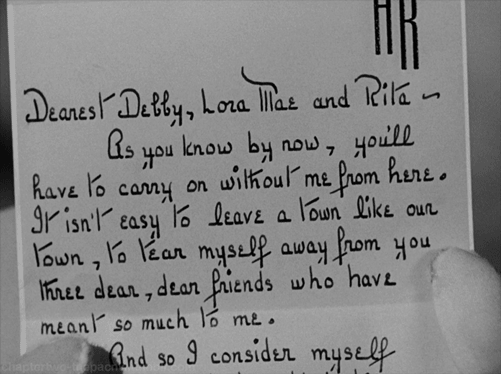 AR
Dearest Debby, Lora Mae and Rita ~
As you know by now, you'll
have to carry on without me from here.
It isn't easy to leave a town like our
town, to tear myself away from you
three dear, dear friends who have
meant so much to me.
And so I consider myself